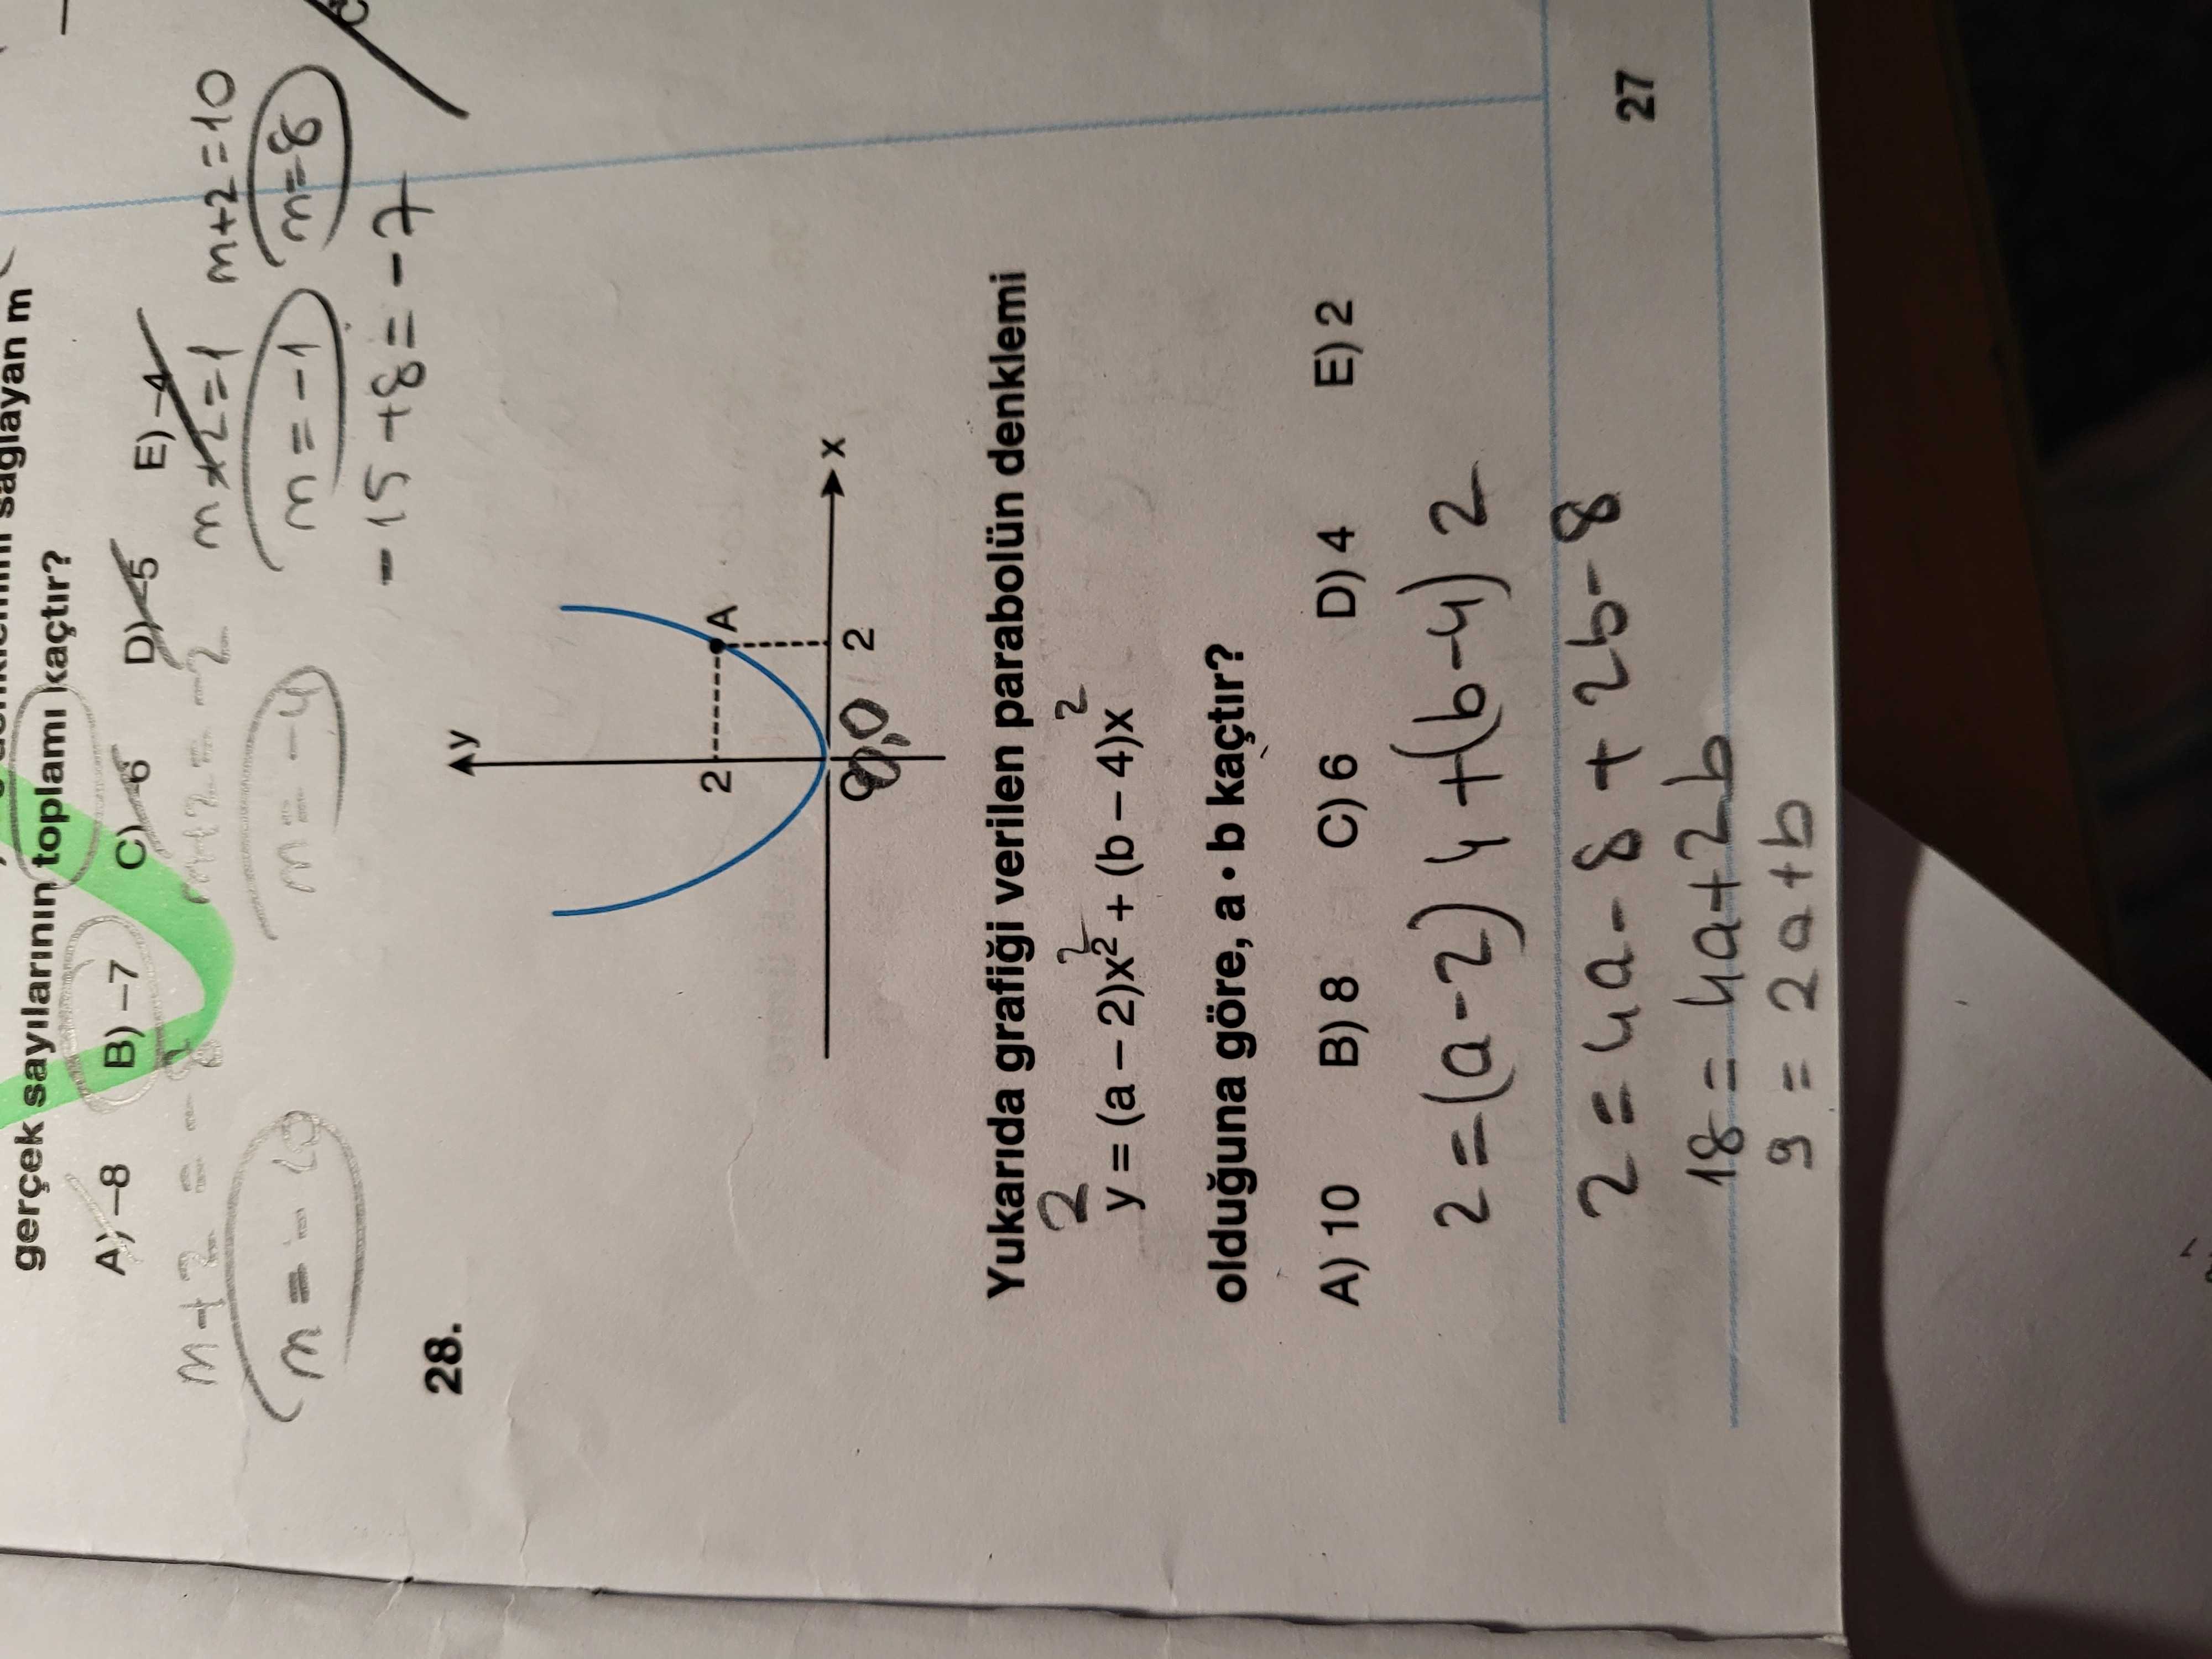 gerçek sayılarının toplamı kaçtır?
A) –8 B) –7 C) –6 D) –5 E) –4
m+2=1 m+2=10
m=-1 m=8
m=-4
-15+8=-7
28.
y
2
A
x
2
0,0
Yukarıda grafiği verilen parabolün denklemi
2 2 2
y = (a – 2)x² + (b – 4)x
olduğuna göre, a • b kaçtır?
A) 10 B) 8 C) 6 D) 4 E) 2
2=(a-2)4+(b-4)2
2=4a-8+2b-8
18=4a+2b
9=2a+b
27